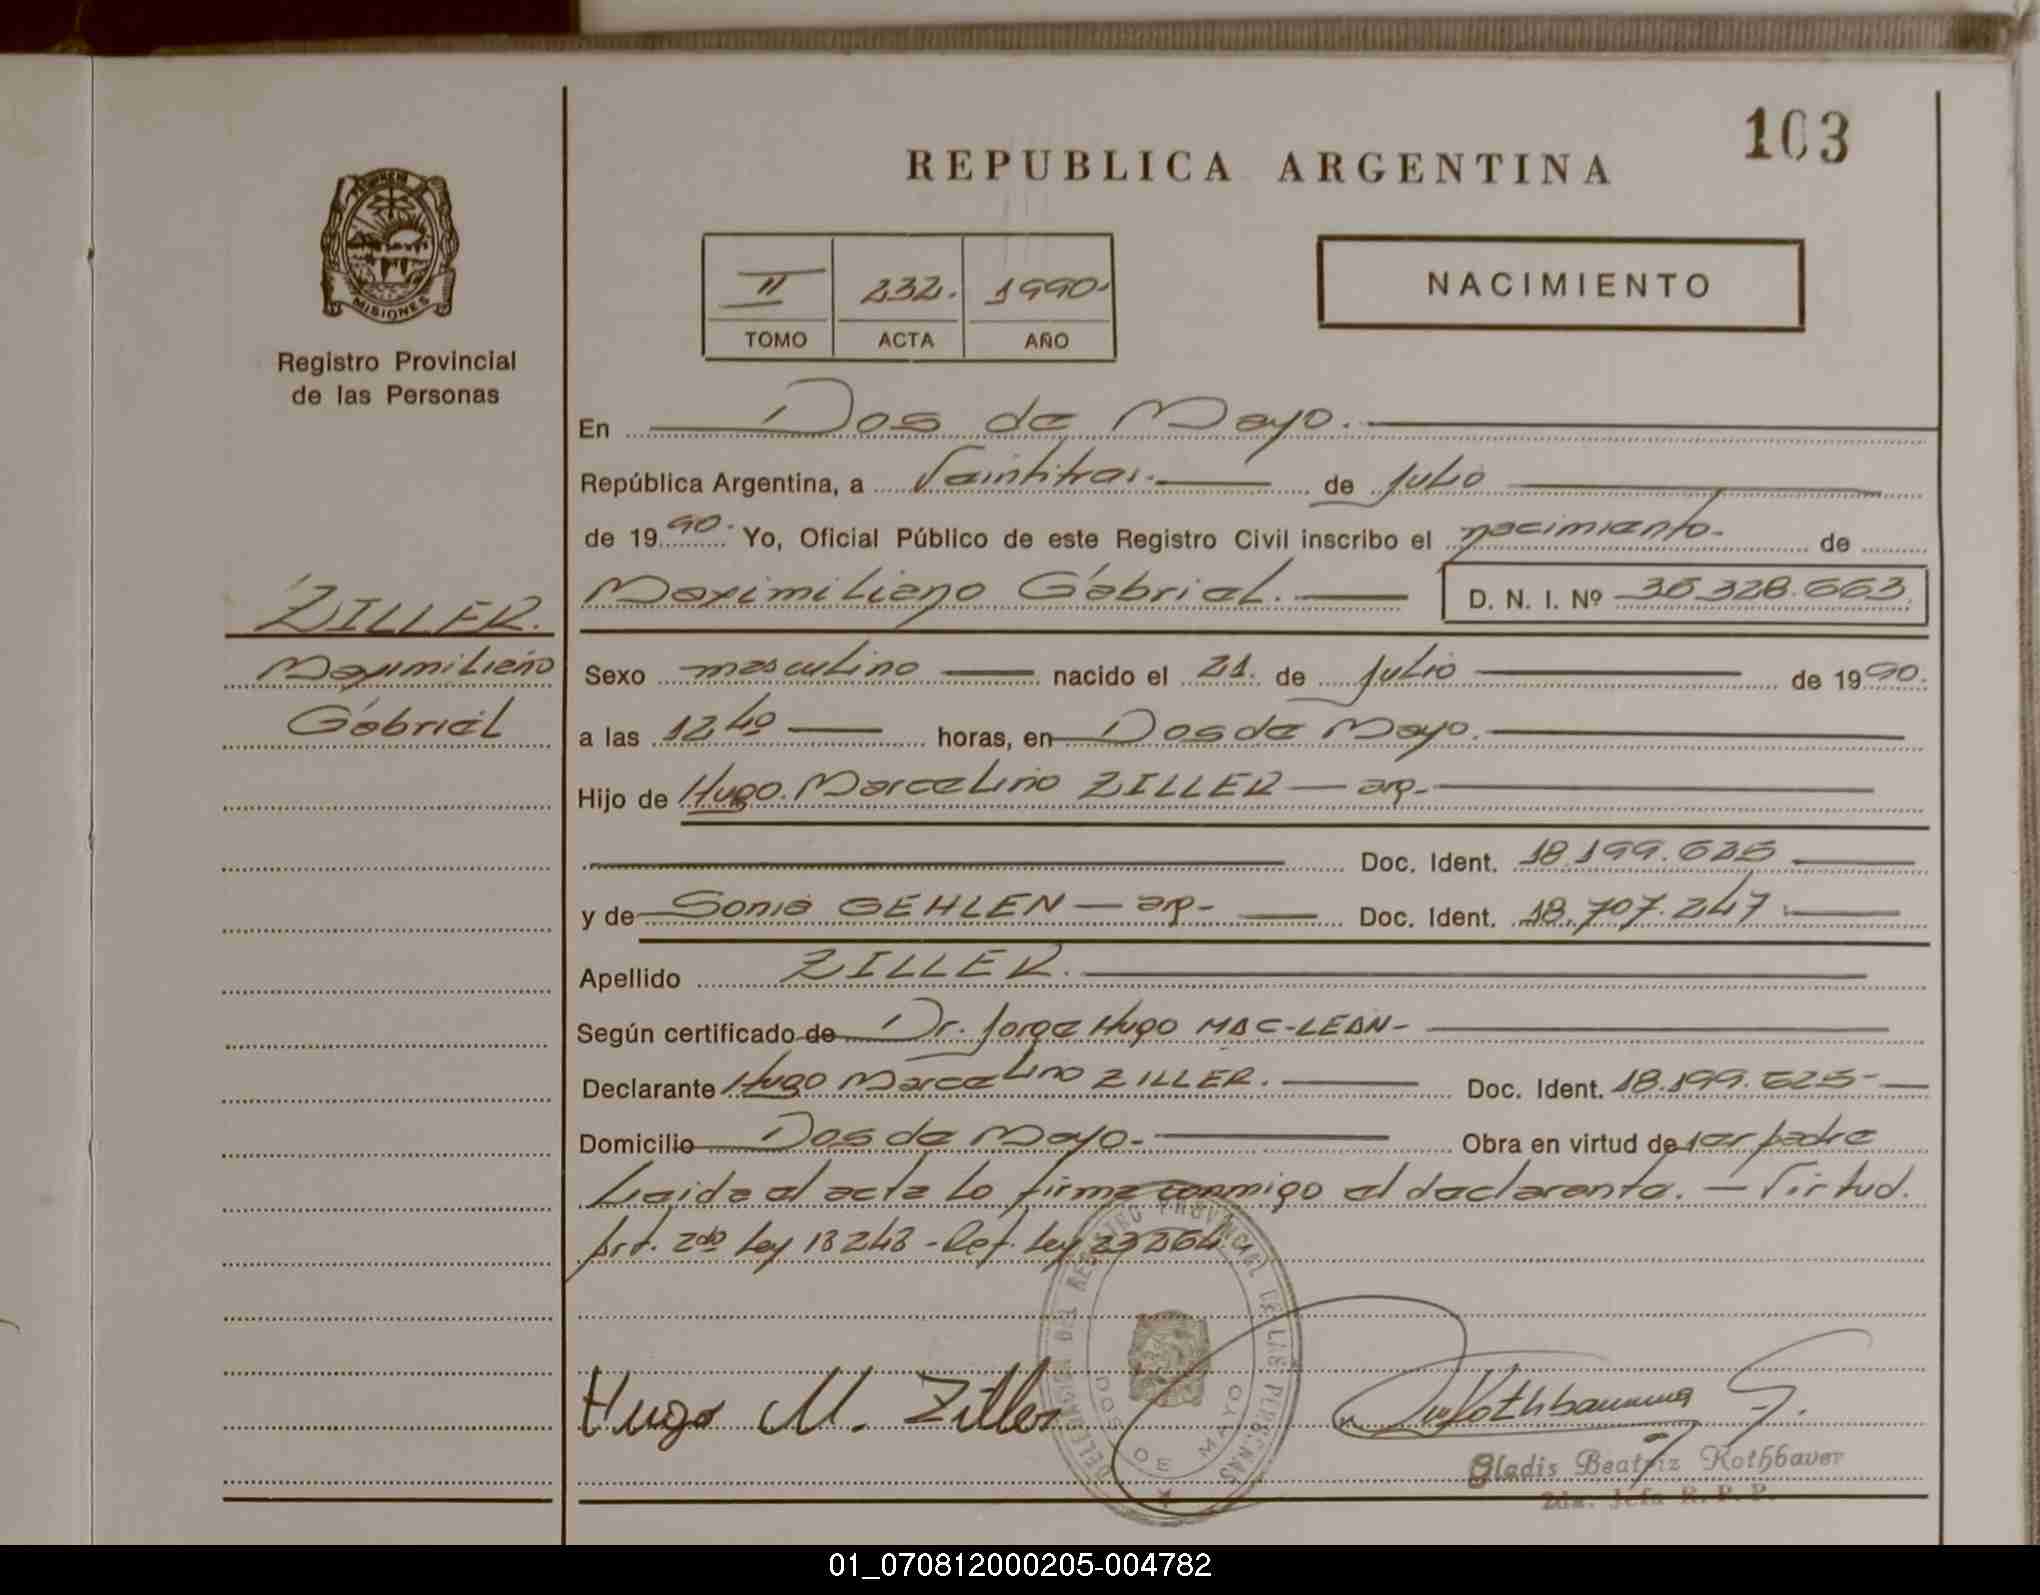 103
REPUBLICA ARGENTINA
MISIONES
Registro Provincial
de las Personas
II 232. 1990.
TOMO ACTA AÑO
NACIMIENTO
En Dos de Mayo.
República Argentina, a Veintitres. de julio
de 1990. Yo, Oficial Público de este Registro Civil inscribo el nacimiento. de
Maximiliano Gabriel. D. N. I. Nº 35.328.663.
ZILLER.
Maximiliano
Gabriel
Sexo masculino nacido el 21. de julio de 1990.
a las 12,40 horas, en Dos de Mayo.
Hijo de Hugo Marcelino ZILLER — arg-
Doc. Ident. 18.199.625
y de Sonia GEHLEN — arg- Doc. Ident. 18.707.247
Apellido ZILLER.
Según certificado de Dr. Jorge Hugo MAC-LEAN-
Declarante Hugo Marcelino ZILLER. Doc. Ident. 18.199.625-
Domicilio Dos de Mayo- Obra en virtud de ser padre
Leida el acta lo firma conmigo el declarante. — Virtud.
Art. 2do Ley 18248 - Ref. Ley 23264
DELEGACION DEL REGISTRO PROVINCIAL DE LAS PERSONAS
DOS DE MAYO
Hugo M. Ziller
Gladis Beatriz Rothbaver
2da. Jefa R. P. P.
01_070812000205-004782